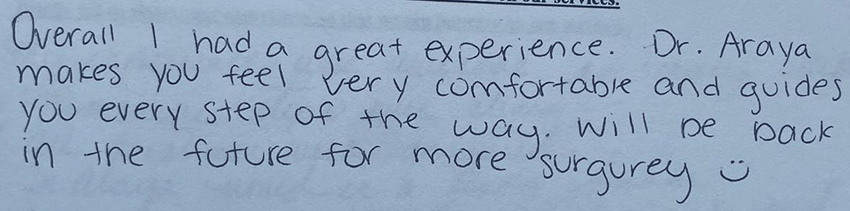 our services.
Overall I had a great experience. Dr. Araya
makes you feel very comfortable and guides
you every step of the way. Will be back
in the future for more surgurey :)